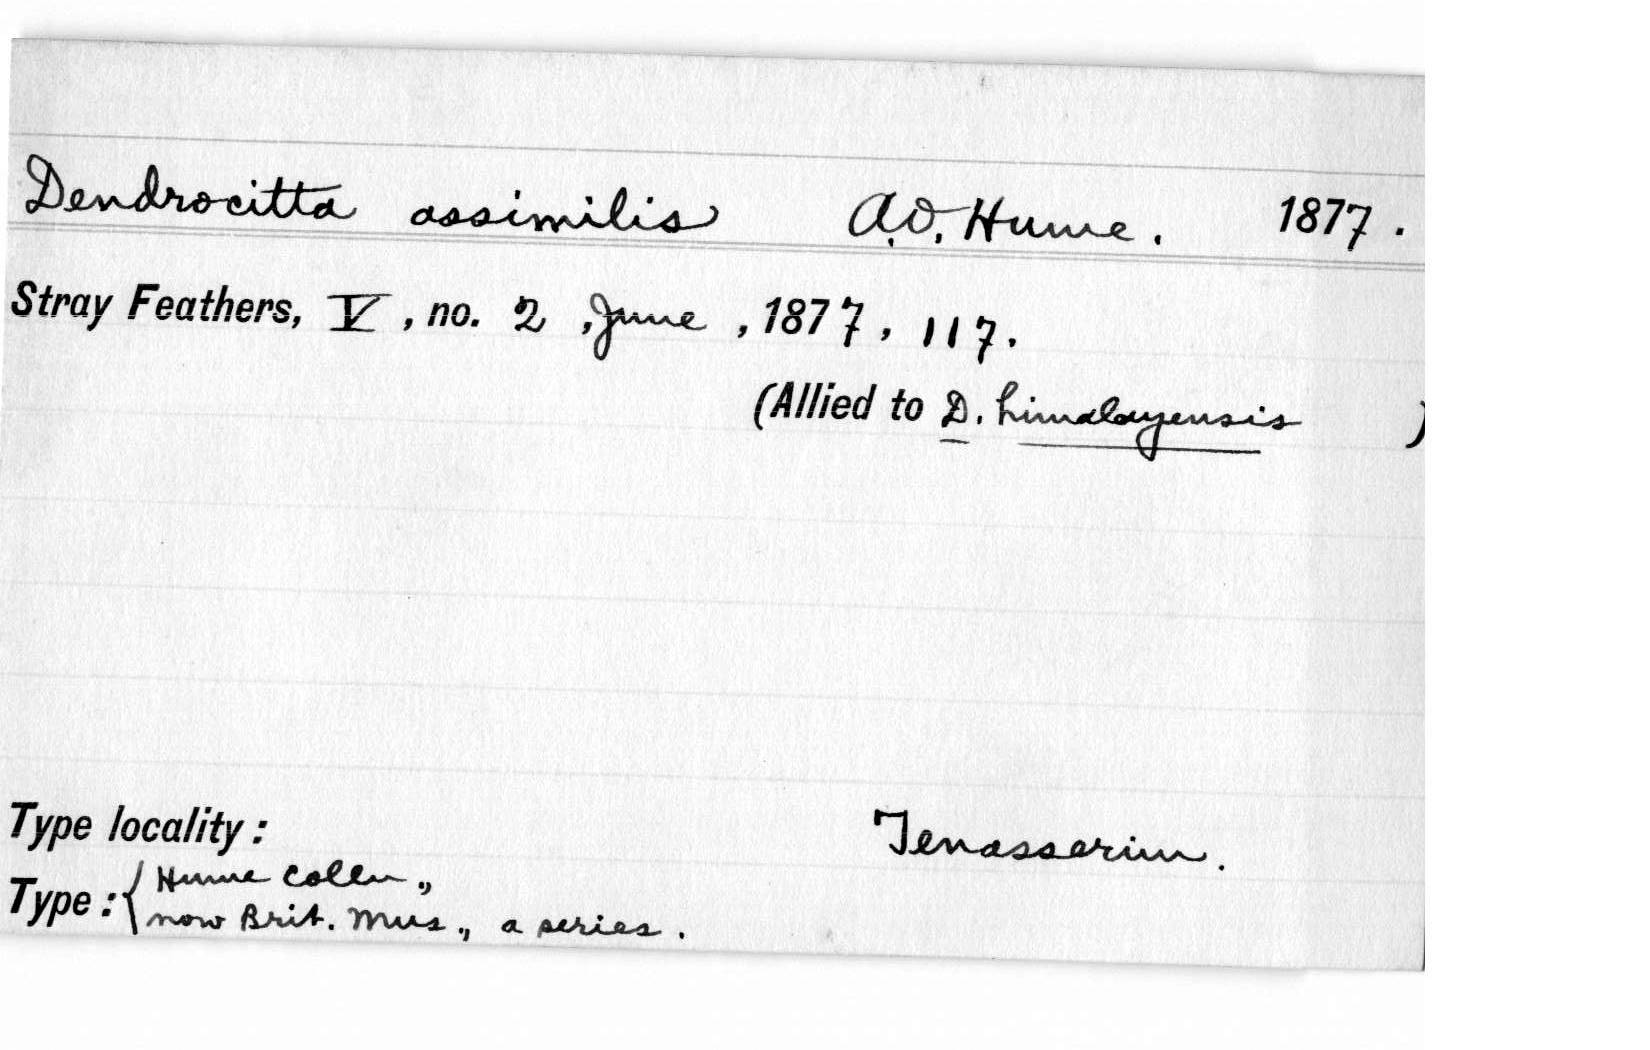 Dendrocitta assimilis A.O. Hume. 1877.
Stray Feathers, V, no. 2, June, 1877, 117.
(Allied to D. himalayensis )
Type locality: Tenasserim.
Type: { Hume Colln.,
now Brit. Mus., a series.